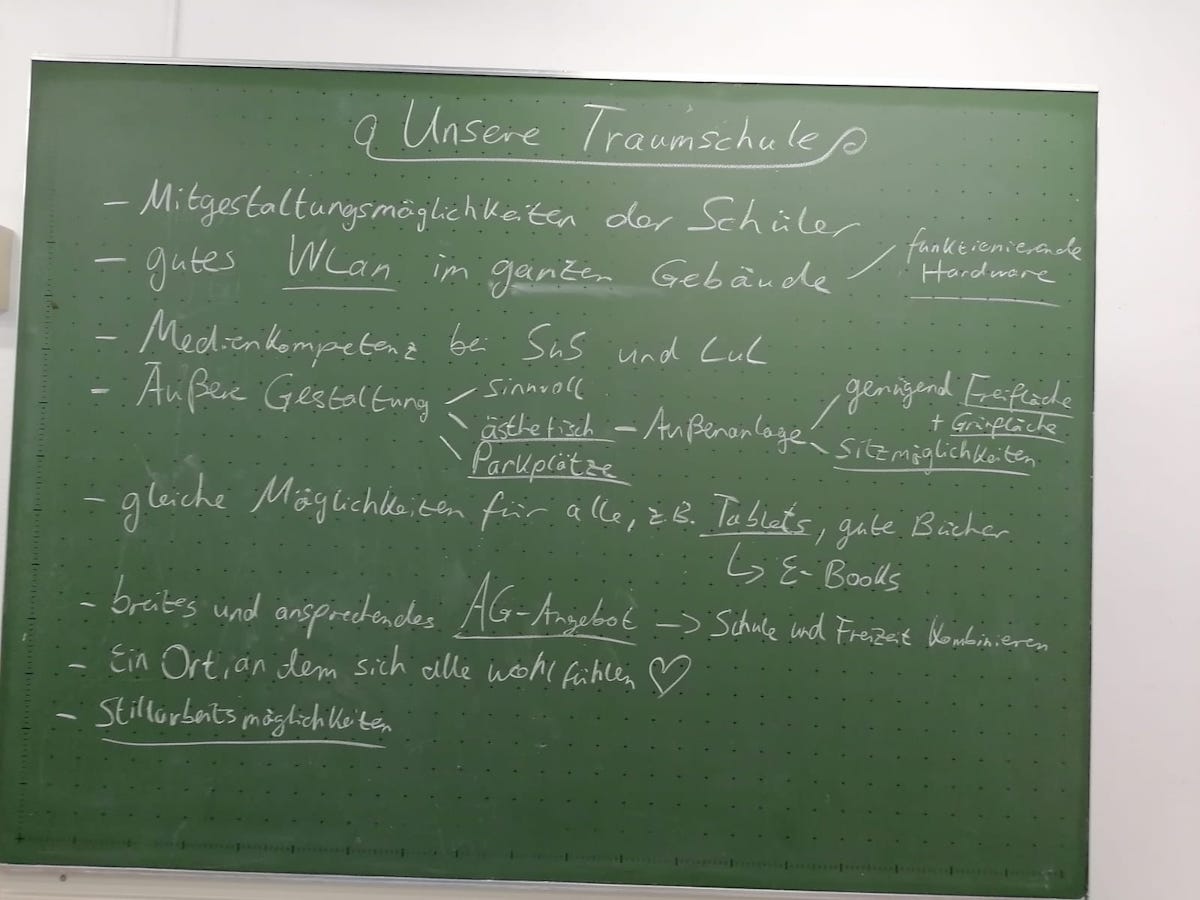 Unsere Traumschule
- Mitgestaltungsmöglichkeiten der Schüler
- gutes WLan im ganzen Gebäude
funktionierende
Hardware
- Medienkompetenz bei SuS und LuL
- Äußere Gestaltung
sinnvoll
ästhetisch - Außenanlage
Parkplätze
genügend Freifläche
+ Grünfläche
Sitzmöglichkeiten
- gleiche Möglichkeiten für alle, z.B. Tablets, gute Bücher
↳ E-Books
- breites und ansprechendes AG-Angebot → Schule und Freizeit kombinieren
- Ein Ort, an dem sich alle wohlfühlen ♡
- Stillarbeitsmöglichkeiten